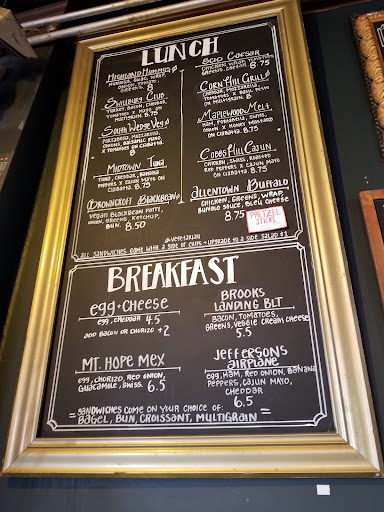 LUNCH
HIGHLAND HUMMUS
HUMMUS, 
ONION, TOMATO,
GREENS 8
SWILLBURG CLUB
TURKEY, BACON, CHEDDAR,
TOMATOES & MAYO ON
MULTIGRAIN 8.75
SOUTH WEDGE VEG
PORTABELLA, MOZZARELLA,
GREENS, BALSAMIC MAYO,
& TOMATOES ON CIABATTA
8
MIDTOWN TUNA
TUNA, CHEDDAR, BANANA
PEPPERS & CAJUN MAYO ON
CIABATTA 8.75
BROWNCROFT BLACKBEAN
VEGAN BLACKBEAN PATTY,
ONION, GREENS, KETCHUP,
BUN. 8.50
CAESAR
CHICKEN WRAP, TOMATOES,
GREENS, CAESAR 8.75
CORN HILL GRILL
CHEDDAR, MOZZARELLA,
TOMATOES & MAYO
ON MULTIGRAIN 8
MAPLEWOOD MELT
HAM, PORTABELLA, SWISS,
ONION & HONEY MUSTARD
ON CIABATTA. 8.75
COBBS HILL CAJUN
CHICKEN, SWISS, ROASTED
RED PEPPERS & CAJUN MAYO
ON CIABATTA 8.75
ALLENTOWN BUFFALO
CHICKEN, GREENS, WRAP,
BUFFALO SAUCE, BLEU CHEESE
8.75
PRETZEL
STICKS
=VEGETARIAN
ALL SANDWICHES COME WITH A SIDE OF CHIPS → UPGRADE TO A SIDE SALAD +1
BREAKFAST
EGG+CHEESE
EGG, CHEDDAR 4.5
ADD BACON OR CHORIZO +2
MT. HOPE MEX
EGG, CHORIZO, RED ONION,
GUACAMOLE, SWISS. 6.5
BROOKS
LANDING BLT
BACON, TOMATOES,
GREENS, VEGGIE CREAM CHEESE
5.5
JEFFERSONS
AIRPLANE
EGG, HAM, RED ONION, BANANA
PEPPERS, CAJUN MAYO,
CHEDDAR
6.5
SANDWICHES COME ON YOUR CHOICE OF:
BAGEL, BUN, CROISSANT, MULTIGRAIN